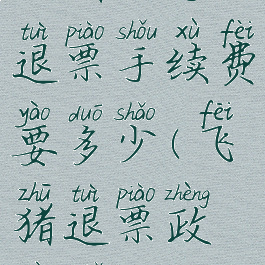 tuì piào shǒu xù fèi
退票手续费
yào duō shǎo fēi
要多少(飞
zhū tuì piào zhèng
猪退票政